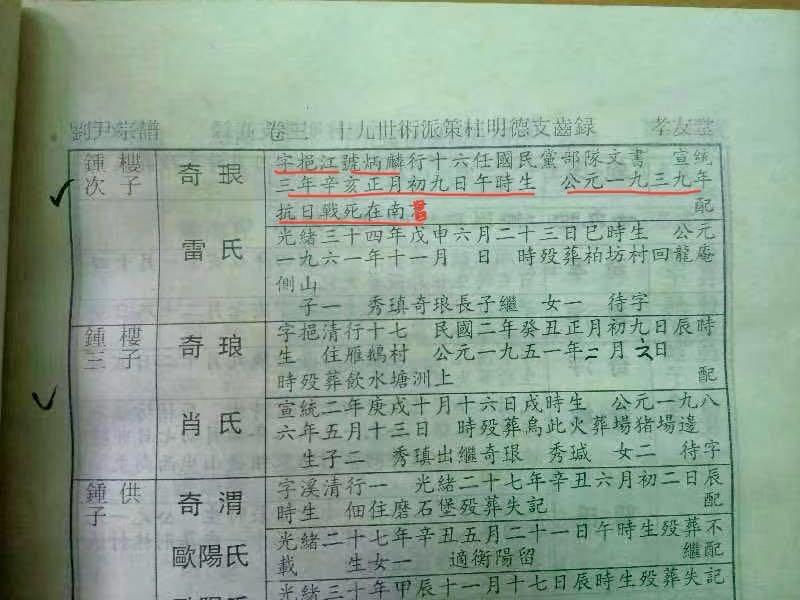 劉尹宗譜 卷三 十九世術派策柱明德支齒録 孝友堂
鍾樓次子
奇珢
字挹江號炳麟行十六任國民黨部隊文書 宣統
三年辛亥正月初九日午時生 公元一九三九年
抗日戰死在南 配
雷氏
光緒三十四年戊申六月二十三日巳時生 公元
一九六一年十一月 日 時殁葬柏坊村回龍庵
側山
子一 秀瑱奇琅長子繼 女一 待字
鍾樓三子
奇琅
字挹清行十七 民國二年癸丑正月初九日辰時
生 住雁鵝村 公元一九五一年二月六日
時殁葬飲水塘洲上 配
肖氏
宣統二年庚戌十月十六日戌時生 公元一九八
六年五月十三日 時殁葬烏此火葬場猪場邊
生子二 秀瑱出繼奇珢 秀瑊 女二 待字
鍾供子
奇渭
字溪清行一 光緒二十七年辛丑六月初二日辰
時生 佃住磨石堡殁葬失記 配
歐陽氏
光緒二十七年辛丑五月二十一日午時生殁葬不
載 生女一 適衡陽留 繼配
光緒三十年甲辰十一月十七日辰時生殁葬失記